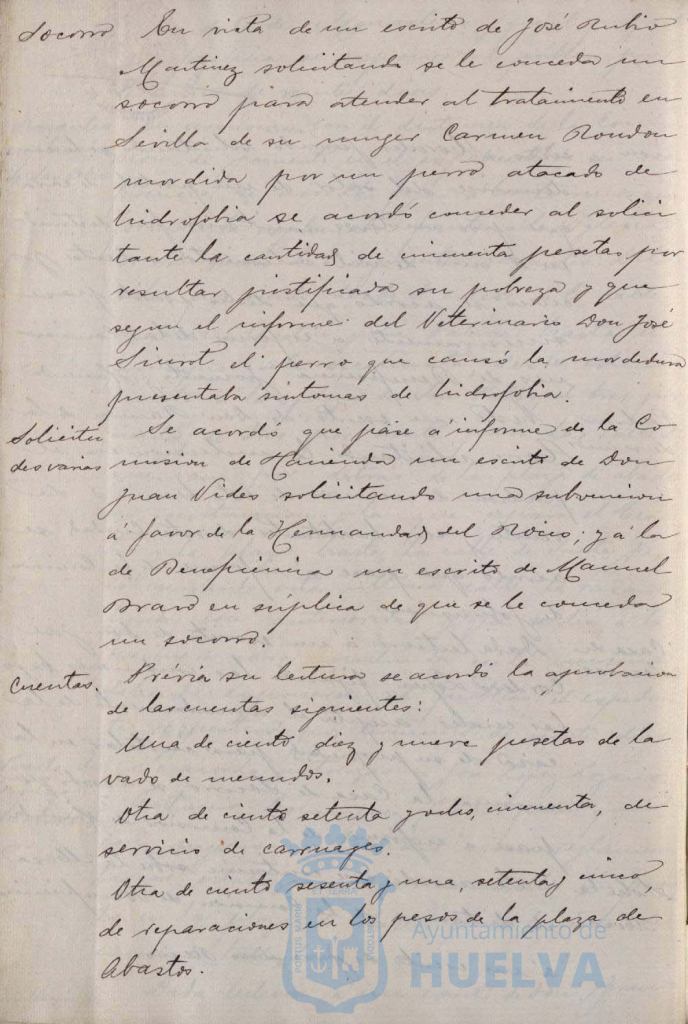 Socorro En vista de un escrito de José Rubio
Martinez solicitando se le conceda un
socorro para atender al tratamiento en
Sevilla de su muger Carmen Rondon
mordida por un perro atacado de
hidrofobia se acordó conceder al solici
tante la cantidad de cincuenta pesetas por
resultar justificada su pobreza y que
segun el informe del Veterinario Don José
Siurot el perro que causó la mordedura
presentaba sintomas de hidrofobia.
Solicitu Se acordó que pase á informe de la Co
des varias mision de Hacienda un escrito de Don
Juan Vides solicitando una subvencion
á favor de la Hermandad del Rocio; y á la
de Beneficencia un escrito de Manuel
Bravo en súplica de que se le conceda
un socorro.
Cuentas. Prévia su lectura se acordó la aprobacion
de las cuentas siguientes:
Una de ciento diez y nueve pesetas de la
vado de menudos.
Otra de ciento setenta y ocho, cincuenta, de
servicio de carruages.
Otra de ciento sesenta y una, setenta y cinco,
de reparaciones en los pesos de la plaza de
Abastos.
PORTUS MARIS
Ayuntamiento de
HUELVA